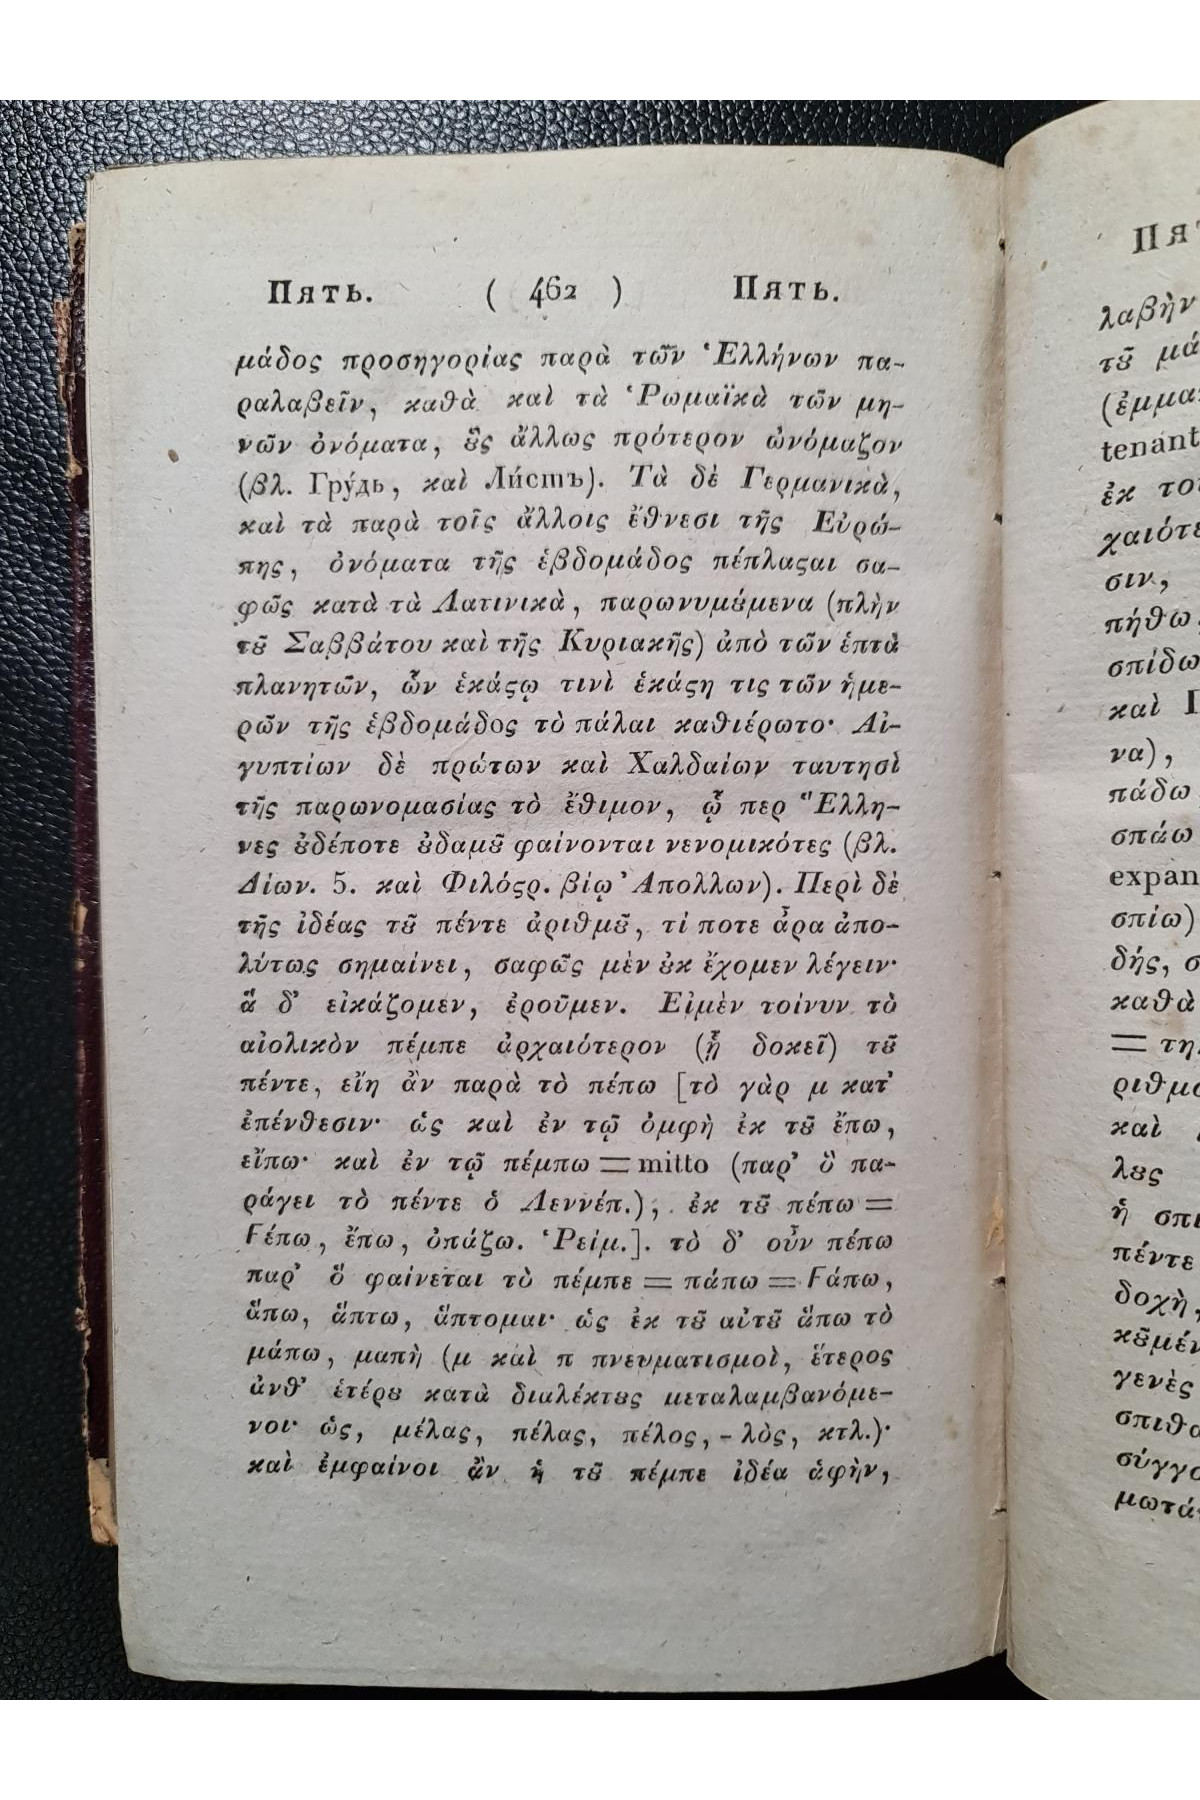 Пять. ( 462 ) Пять.
μάδος προσηγορίας παρὰ τῶν Ἑλλήνων πα-
ραλαβεῖν, καθὰ καὶ τὰ Ῥωμαϊκὰ τῶν μη-
νῶν ὀνόματα, ȣ̓̀ς ἄλλως πρότερον ὠνόμαζον
(βλ. Гру́дь, καὶ Ли́стъ). Τὰ δὲ Γερμανικὰ,
καὶ τὰ παρὰ τοῖς ἄλλοις ἔθνεσι τῆς Εὐρώ-
πης, ὀνόματα τῆς ἑβδομάδος πέπλαϛαι σα-
φῶς κατὰ τὰ Λατινικὰ, παρωνυμȣ́μενα (πλὴν
τȣ͂ Σαββάτου καὶ τῆς Κυριακῆς) ἀπὸ τῶν ἑπτὰ
πλανητῶν, ὧν ἑκάϛῳ τινὶ ἑκάϛη τις τῶν ἡμε-
ρῶν τῆς ἑβδομάδος τὸ πάλαι καθιέρωτο· Αἰ-
γυπτίων δὲ πρώτων καὶ Χαλδαίων ταυτησὶ
τῆς παρωνομασίας τὸ ἔθιμον, ᾧ περ Ἕλλη-
νες ȣ̓δέποτε ȣ̓δαμȣ͂ φαίνονται νενομικότες (βλ.
Δίων. 5. καὶ Φιλόϛρ. βίῳ Ἀπολλων). Περὶ δὲ
τῆς ἰδέας τȣ͂ πέντε ἀριθμȣ͂, τί ποτε ἆρα ἀπο-
λύτως σημαίνει, σαφῶς μὲν ȣ̓κ ἔχομεν λέγειν·
ἃ δ' εἰκάζομεν, ἐροῦμεν. Εἰμὲν τοίνυν τὸ
αἰολικὸν πέμπε ἀρχαιότερον (ᾗ δοκεῖ) τȣ͂
πέντε, εἴη ἂν παρὰ τὸ πέπω [τὸ γὰρ μ κατ'
ἐπένθεσιν· ὡς καὶ ἐν τῷ ὀμφὴ ἐκ τȣ͂ ἔπω,
εἴπω· καὶ ἐν τῷ πέμπω = mitto (παρ' ὃ πα-
ράγει τὸ πέντε ὁ Λεννέπ.), ἐκ τȣ͂ πέπω =
Fέπω, ἔπω, ὀπάζω. Ῥείμ.]. τὸ δ' οὖν πέπω
παρ' ὃ φαίνεται τὸ πέμπε = πάπω = Fάπω,
ἅπω, ἅπτω, ἅπτομαι· ὡς ἐκ τȣ͂ αὐτȣ͂ ἅπω τὸ
μάπω, μαπὴ (μ καὶ π πνευματισμοὶ, ἕτερος
ἀνθ' ἑτέρȣ κατὰ διαλέκτȣς μεταλαμβανόμε-
νοι· ὡς, μέλας, πέλας, πέλος, -λὸς, κτλ.)·
καὶ ἐμφαίνοι ἂν ἡ τȣ͂ πέμπε ἰδέα ἁφὴν,
Πя
λαβὴν
τȣ͂ μά
(ἐμμα
tenant
ἐκ το
χαιότε
σιν,
πήθω
σπίδω
καὶ
να),
πάδω
σπάω
expan
σπίω)
δής, σ
καθὰ
= τη
ριθμ
καὶ
λȣς
ἡ σπι
πέντε
δοχὴ,
κȣ͂μέν
γενὲς
σπιθα
σύγγ
μωτά